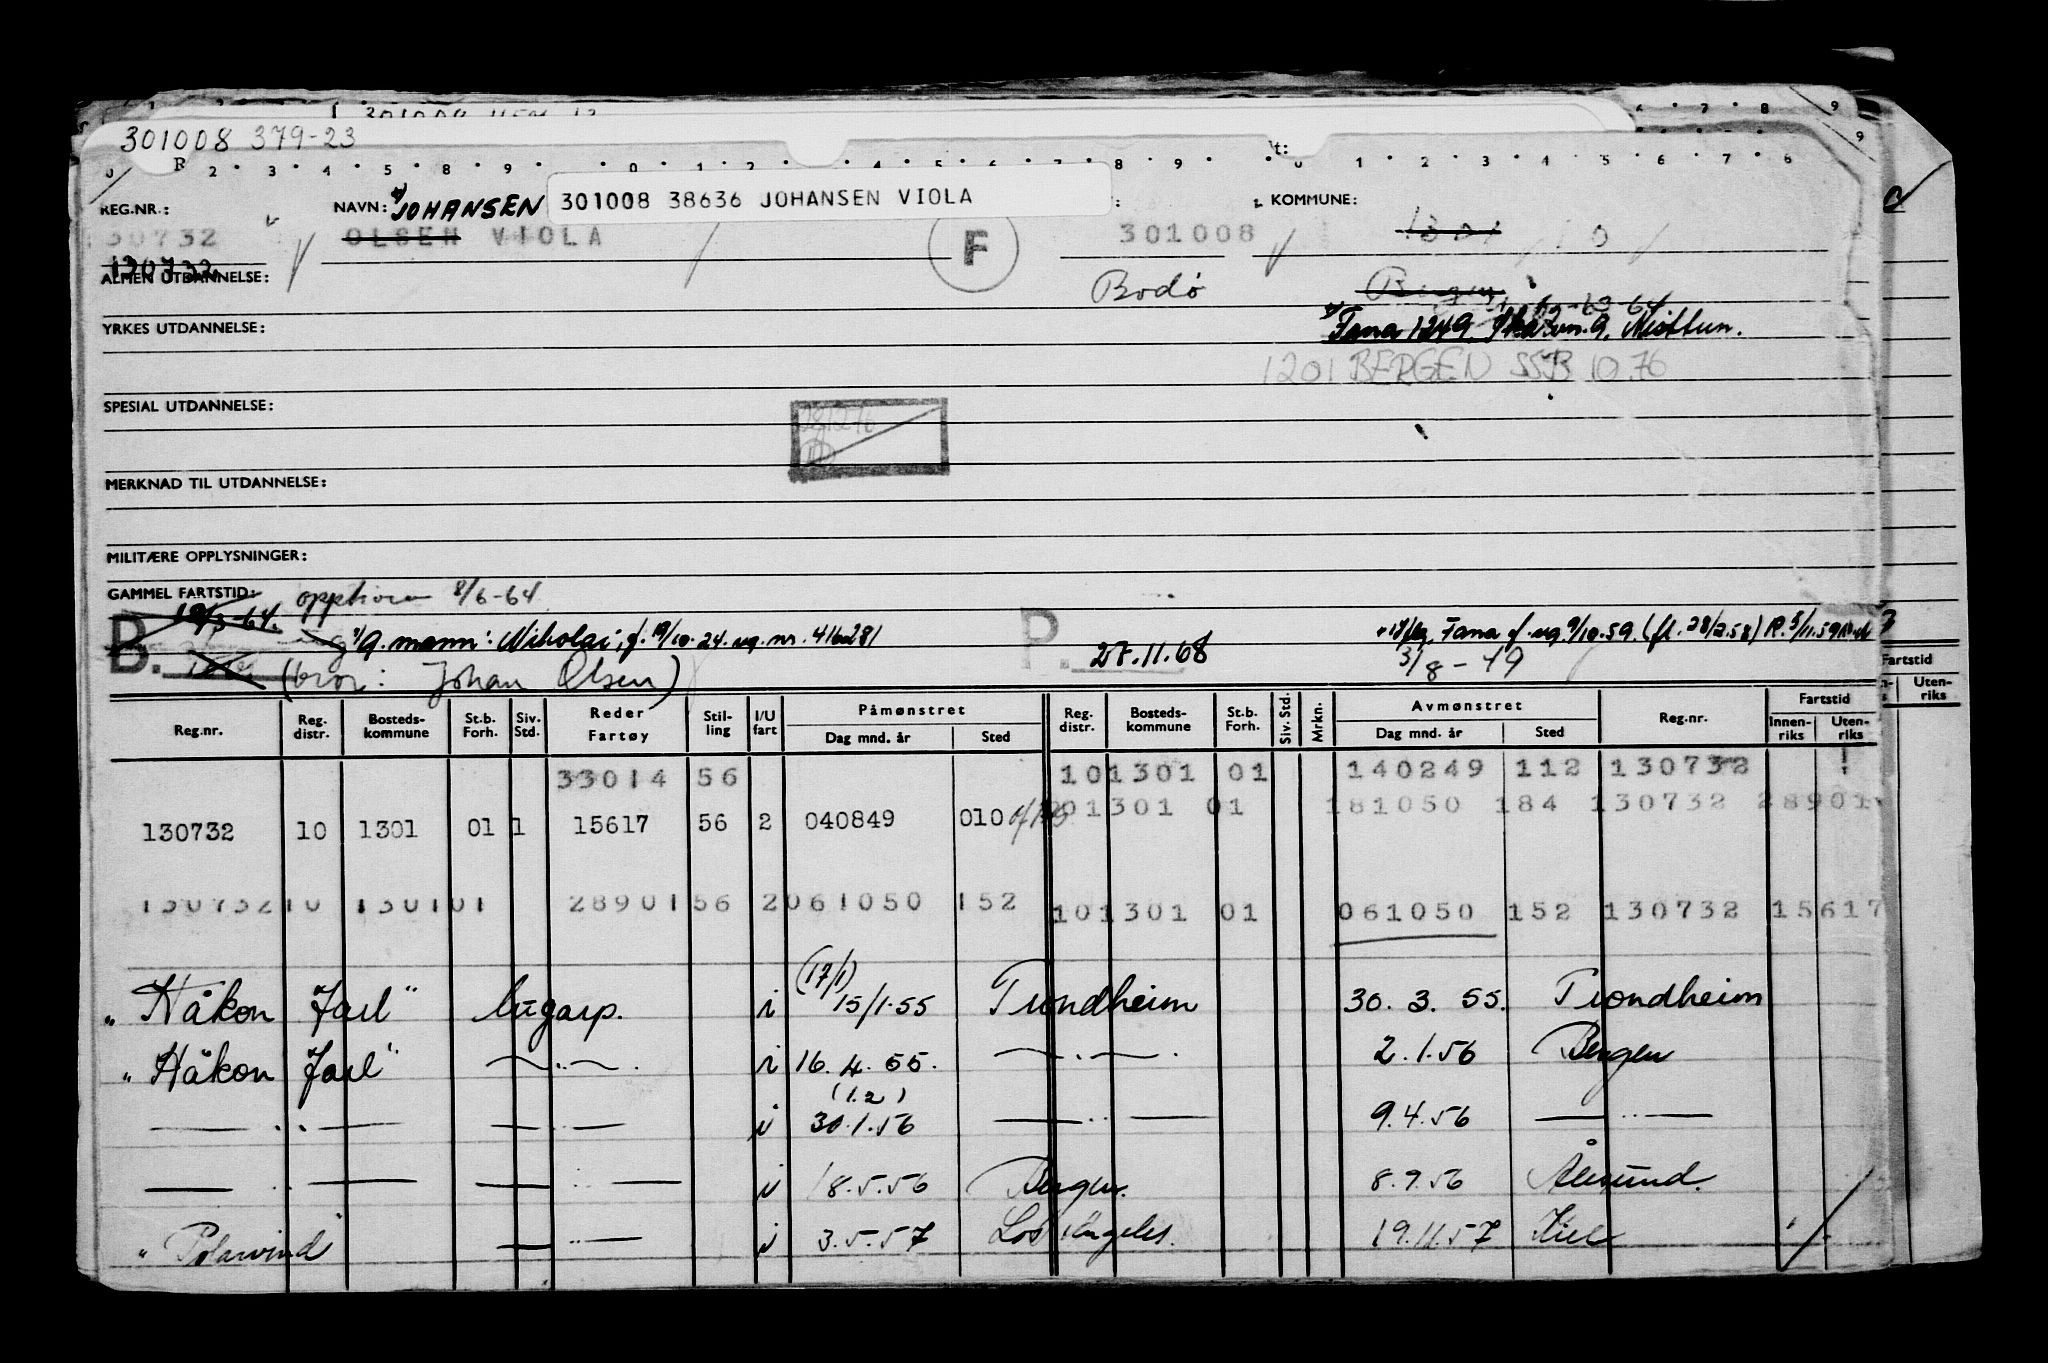 301008 379-23
REG.NR.:
NAVN: JOHANSEN
301008 38636 JOHANSEN VIOLA
KOMMUNE:
30732
OLSEN VIOLA
F
301008
130732
ALMEN UTDANNELSE:
Bodø
Bergen
YRKES UTDANNELSE:
Fana 1249
1201 BERGEN SSB 10.76
SPESIAL UTDANNELSE:
MERKNAD TIL UTDANNELSE:
MILITÆRE OPPLYSNINGER:
GAMMEL FARTSTID:
8/6-64
B.
g. mann: Nikolai, f. 19/10.24. ug. nr. 416281
P.
27.11.68
Fana f. ug. 9/10.59. (fl. 28/2.58) R. 3/11.59
(bror: Johan Olsen)
3/8-49
Reg.nr. Reg. distr. Bosteds-kommune St.b. Forh. Siv. Std. Reder Fartøy Stil-ling I/U fart Påmønstret Dag mnd. år Sted Reg. distr. Bosteds-kommune St.b. Forh. Siv. Std. Mrkn. Avmønstret Dag mnd. år Sted Reg.nr. Fartstid Innen-riks Uten-riks
Fartstid
Uten-riks
33014 56 101301 01 140249 112 130732
101301 01 181050 184 130732 28901
130732 10 1301 01 1 15617 56 2 040849 010
130732 10 1301 01 28901 56 2 061050 152 101301 01 061050 152 130732 15617
(17/1)
"Håkon Jarl" lugarp. i 15/1-55 Trondheim 30. 3. 55. Trondheim
"Håkon Jarl" — " — i 16. 4. 55. — " — 2.1.56 Bergen
(1.2)
— " — — " — i 30.1.56 — " — 9.4.56 — " —
— " — — " — i 18.5.56 Bergen. 8.9.56 Ålesund.
"Polarvind" — " — 3.5.57 Los Angeles. 19.11.57 Kiel